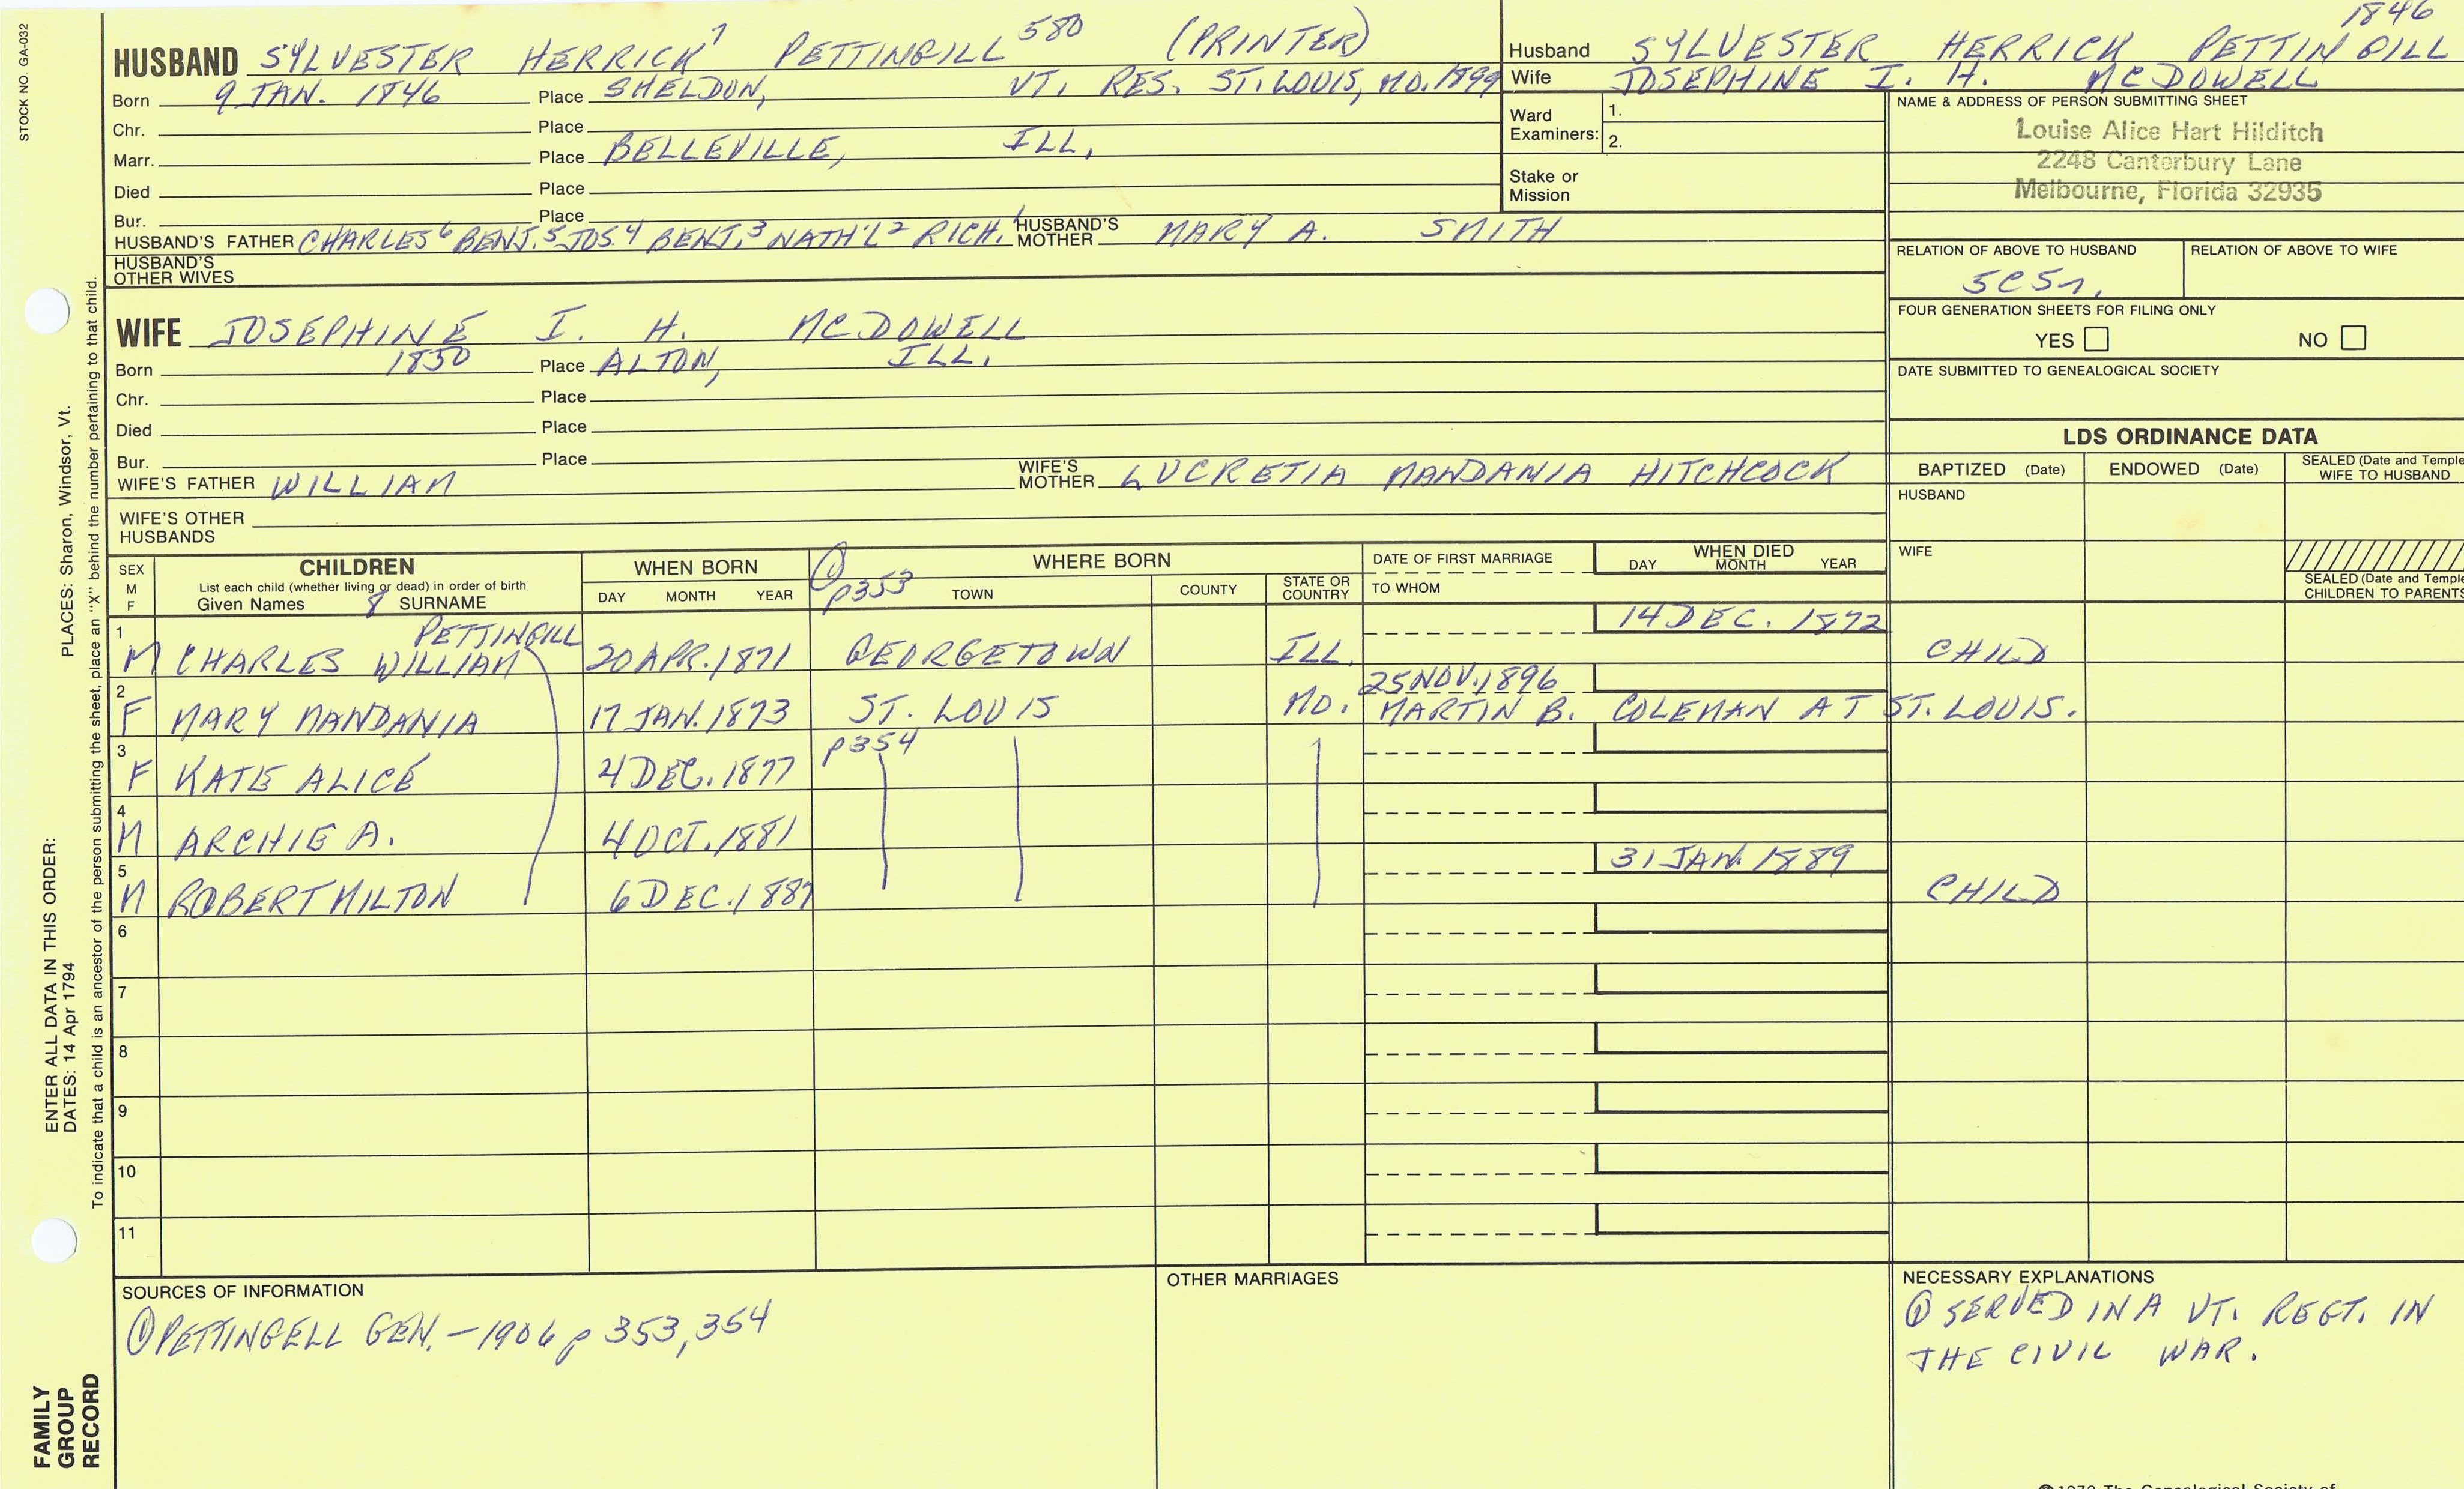 STOCK NO. GA-032
HUSBAND SYLVESTER HERRICK 7 PETTINGILL 580 (PRINTER)
Born 9 JAN. 1846 Place SHELDON, VT. RES. ST. LOUIS, MO. 1899
Chr. Place
Marr. Place BELLEVILLE, ILL.
Died Place
Bur. Place
HUSBAND'S FATHER CHARLES 6 BENJ. 5 JOS. 4 BENJ. 3 NATH'L 2 RICH. 1 HUSBAND'S MOTHER MARY A. SMITH
HUSBAND'S OTHER WIVES
1846
Husband SYLVESTER HERRICK PETTINGILL
Wife JOSEPHINE I. H. MCDOWELL
Ward Examiners: 1.
2.
Stake or Mission
NAME & ADDRESS OF PERSON SUBMITTING SHEET
Louise Alice Hart Hilditch
2248 Canterbury Lane
Melbourne, Florida 32935
RELATION OF ABOVE TO HUSBAND RELATION OF ABOVE TO WIFE
5C5r.
FOUR GENERATION SHEETS FOR FILING ONLY
YES NO
DATE SUBMITTED TO GENEALOGICAL SOCIETY
WIFE JOSEPHINE I. H. MCDOWELL
Born 1850 Place ALTON, ILL.
Chr. Place
Died Place
Bur. Place
WIFE'S FATHER WILLIAM WIFE'S MOTHER LUCRETIA MANDANIA HITCHCOCK
WIFE'S OTHER HUSBANDS
LDS ORDINANCE DATA
BAPTIZED (Date) ENDOWED (Date) SEALED (Date and Temple WIFE TO HUSBAND
HUSBAND
WIFE
SEALED (Date and Temple CHILDREN TO PARENTS
SEX M F CHILDREN
List each child (whether living or dead) in order of birth
Given Names 8 SURNAME
WHEN BORN DAY MONTH YEAR
① p353 WHERE BORN TOWN COUNTY STATE OR COUNTRY
DATE OF FIRST MARRIAGE
TO WHOM
WHEN DIED DAY MONTH YEAR
PETTINGILL 14 DEC. 1872
1 M CHARLES WILLIAM 20 APR. 1871 GEORGETOWN ILL. CHILD
25 NOV. 1896
2 F MARY MANDANIA 17 JAN. 1873 ST. LOUIS MO. MARTIN B. COLEMAN AT ST. LOUIS.
p354
3 F KATE ALICE 4 DEC. 1877
4 M ARCHIE A. 4 OCT. 1881
31 JAN. 1889
5 M ROBERT MILTON 6 DEC. 1887 CHILD
6
7
8
9
10
11
SOURCES OF INFORMATION
① PETTINGELL GEN. - 1906 p 353, 354
OTHER MARRIAGES
NECESSARY EXPLANATIONS
① SERVED IN A VT. REGT. IN
THE CIVIL WAR.
ENTER ALL DATA IN THIS ORDER:
DATES: 14 Apr 1794
PLACES: Sharon, Windsor, Vt.
To indicate that a child is an ancestor of the person submitting the sheet, place an "X" behind the number pertaining to that child.
FAMILY
GROUP
RECORD